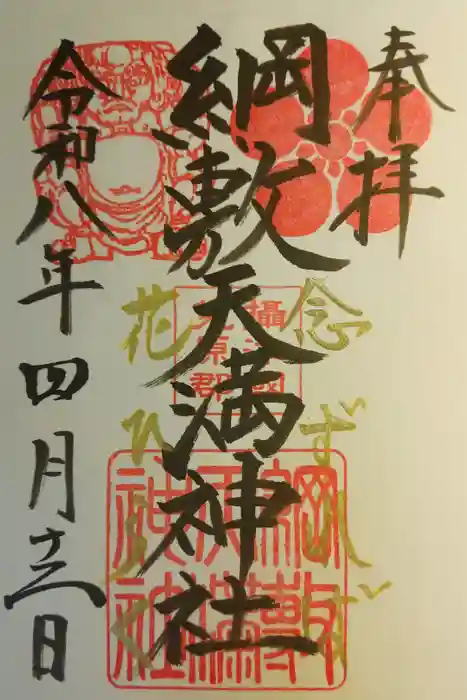 奉拝
綱敷天満神社
令和八年四月十二日
念ずれば
花ひらく
攝津國
菟原郡
綱敷
天滿
神社